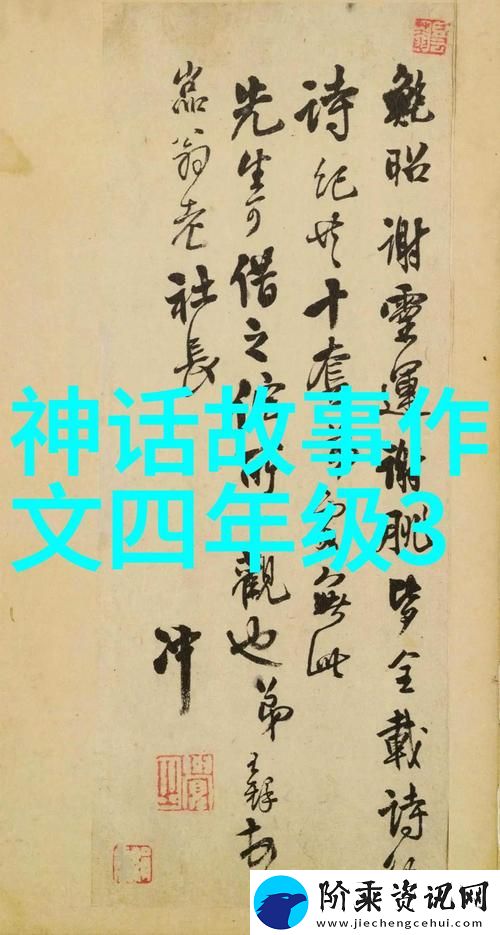 鮑昭謝靈運謝朓皆全載詩
詩紀共十套無此
先生可借之所觀也弟
翁老社長
冲
神话故事作
文四年级3
阶乘资讯网
www.jiechengcehui.com